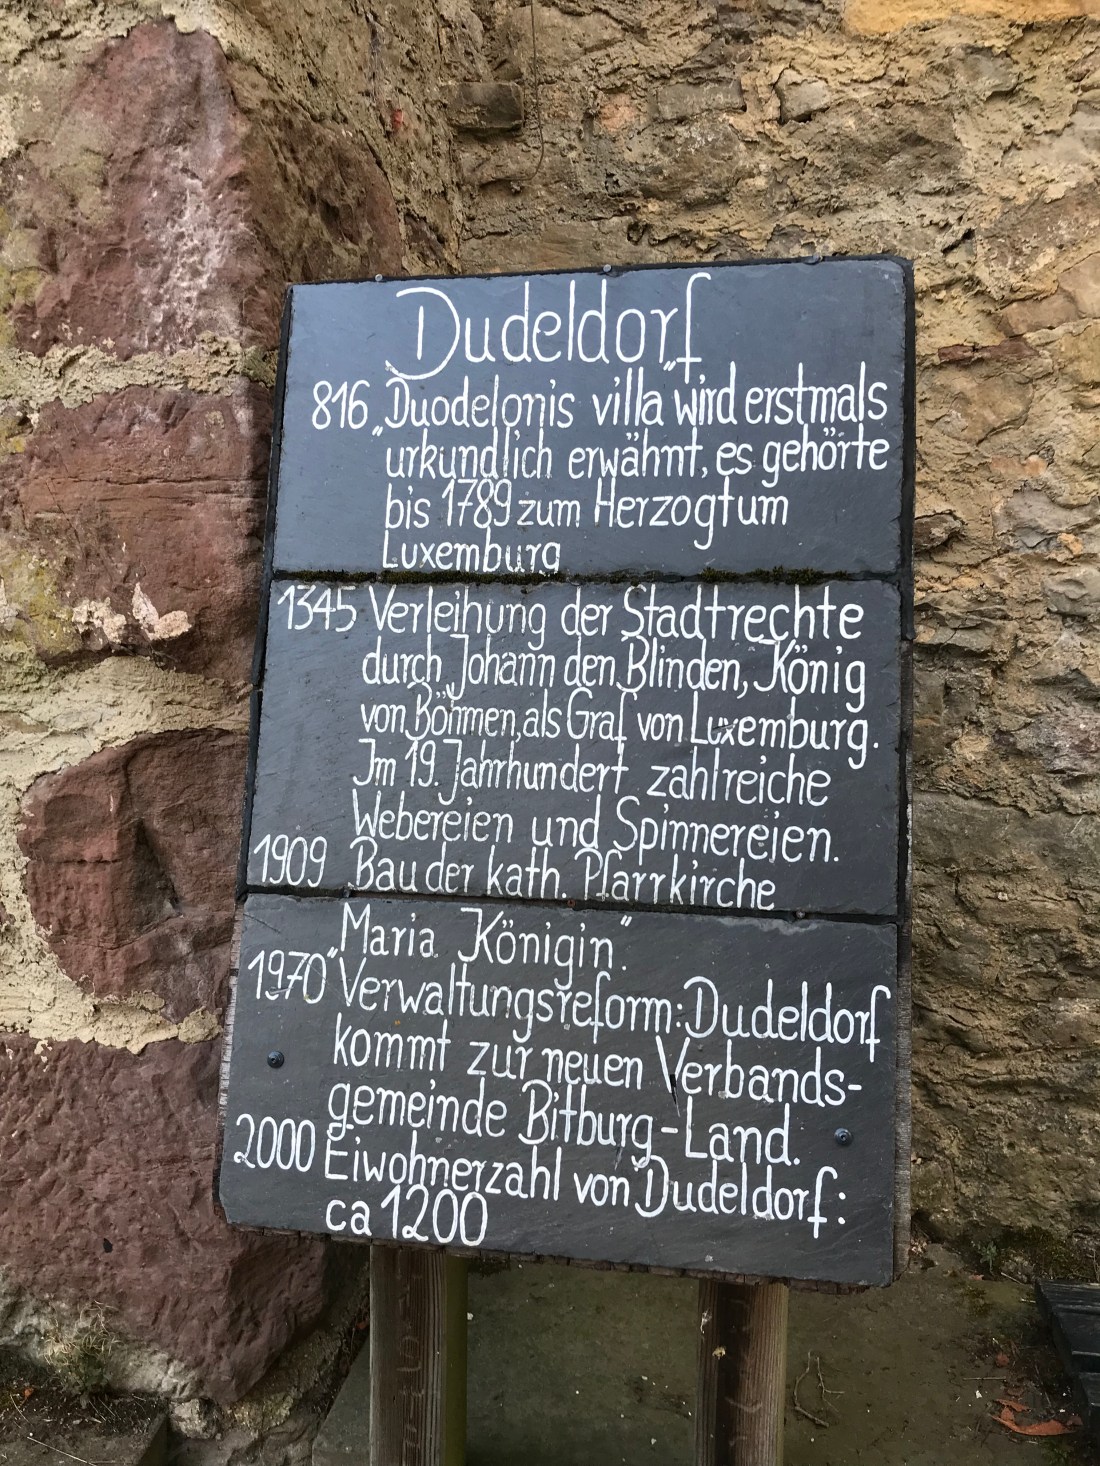 Dudeldorf
816 „Duodelonis villa" wird erstmals
urkundlich erwähnt, es gehörte
bis 1789 zum Herzogtum
Luxemburg
1345 Verleihung der Stadtrechte
durch Johann den Blinden, König
von Böhmen, als Graf von Luxemburg.
Im 19. Jahrhundert zahlreiche
Webereien und Spinnereien.
1909 Bau der kath. Pfarrkirche
„Maria Königin".
1970 Verwaltungsreform: Dudeldorf
kommt zur neuen Verbands-
gemeinde Bitburg-Land.
2000 Eiwohnerzahl von Dudeldorf:
ca 1200